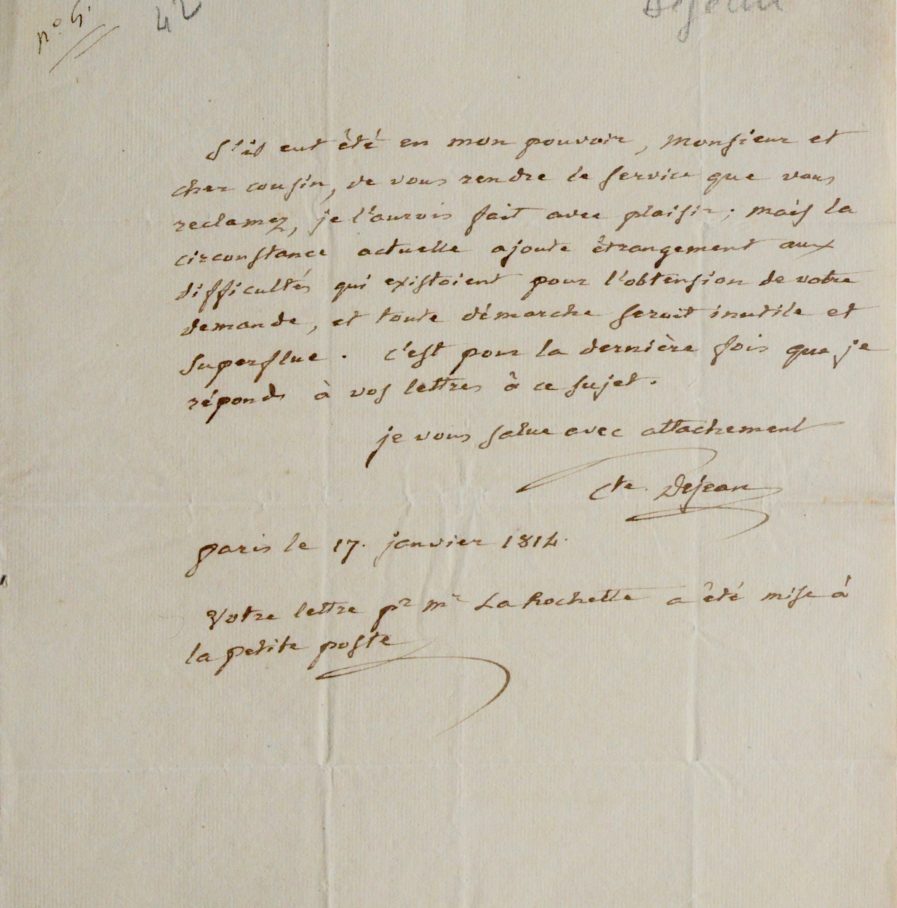 n.º 5.
42
Dejean
S'il eut été en mon pouvoir, Monsieur et
cher cousin, de vous rendre le service que vous
reclamez, je l'aurois fait avec plaisir; mais la
circonstance actuelle ajoute étrangement aux
difficultés qui existoient pour l'obtension de votre
demande, et toute démarche seroit inutile et
superflue. c'est pour la dernière fois que je
réponds à vos lettres à ce sujet.
je vous salue avec attachement
Cte. Dejean
paris le 17. janvier 1814.
Votre lettre pr mr La Rochette a été mise à
la petite poste